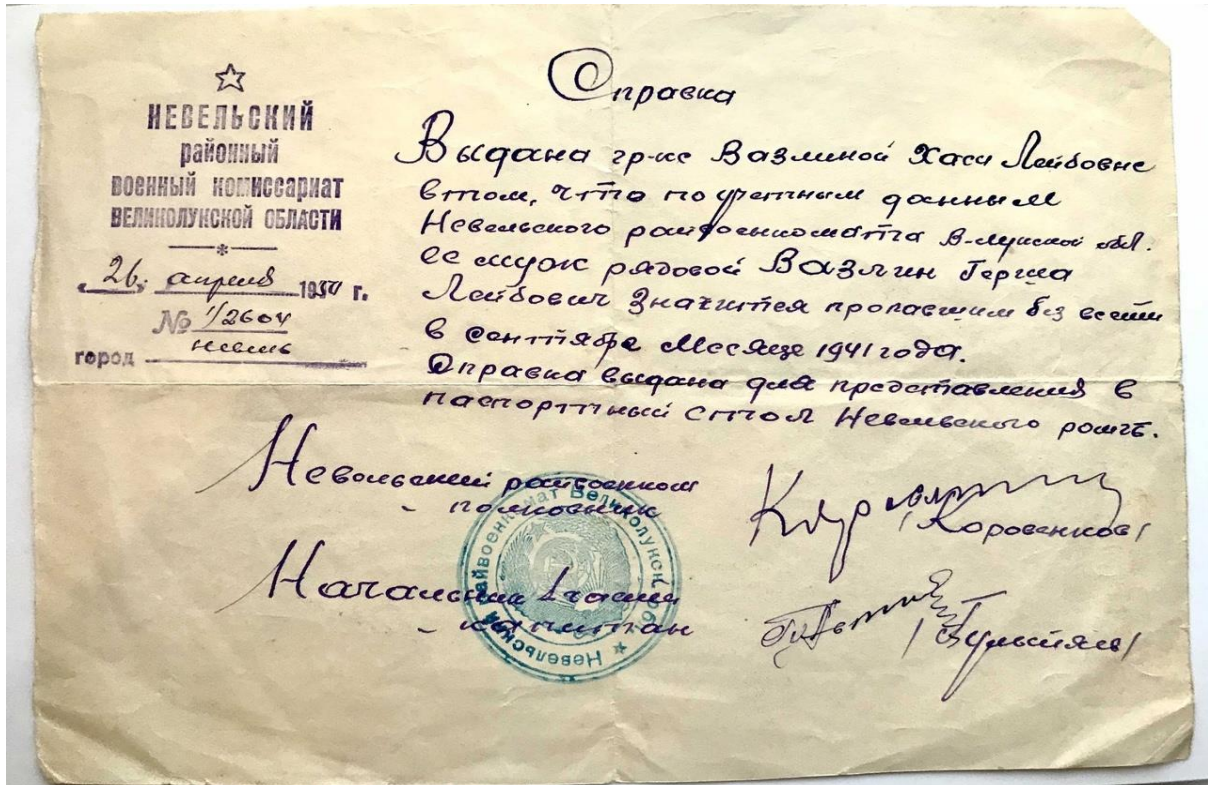 НЕВЕЛЬСКИЙ
районный
ВОЕННЫЙ КОМИССАРИАТ
ВЕЛИКОЛУКСКОЙ ОБЛАСТИ
26 апреля 1950 г.
№ 1/2604
город Невель
Справка
Выдана гр-ке Вазлиной Хаси Лейбовне
в том, что по учетным данным
Невельского райвоенкомата В-Лукской обл.
ее муж рядовой Вазлин Герша
Лейбович значится пропавшим без вести
в сентябре месяце 1941 года.
Справка выдана для представления в
паспортный стол Невельского
Невельский райвоенком
- полковник
/Коровенков/
Начальник 1 части
- капитан
Невельский райвоенкомат Великолукск. обл.